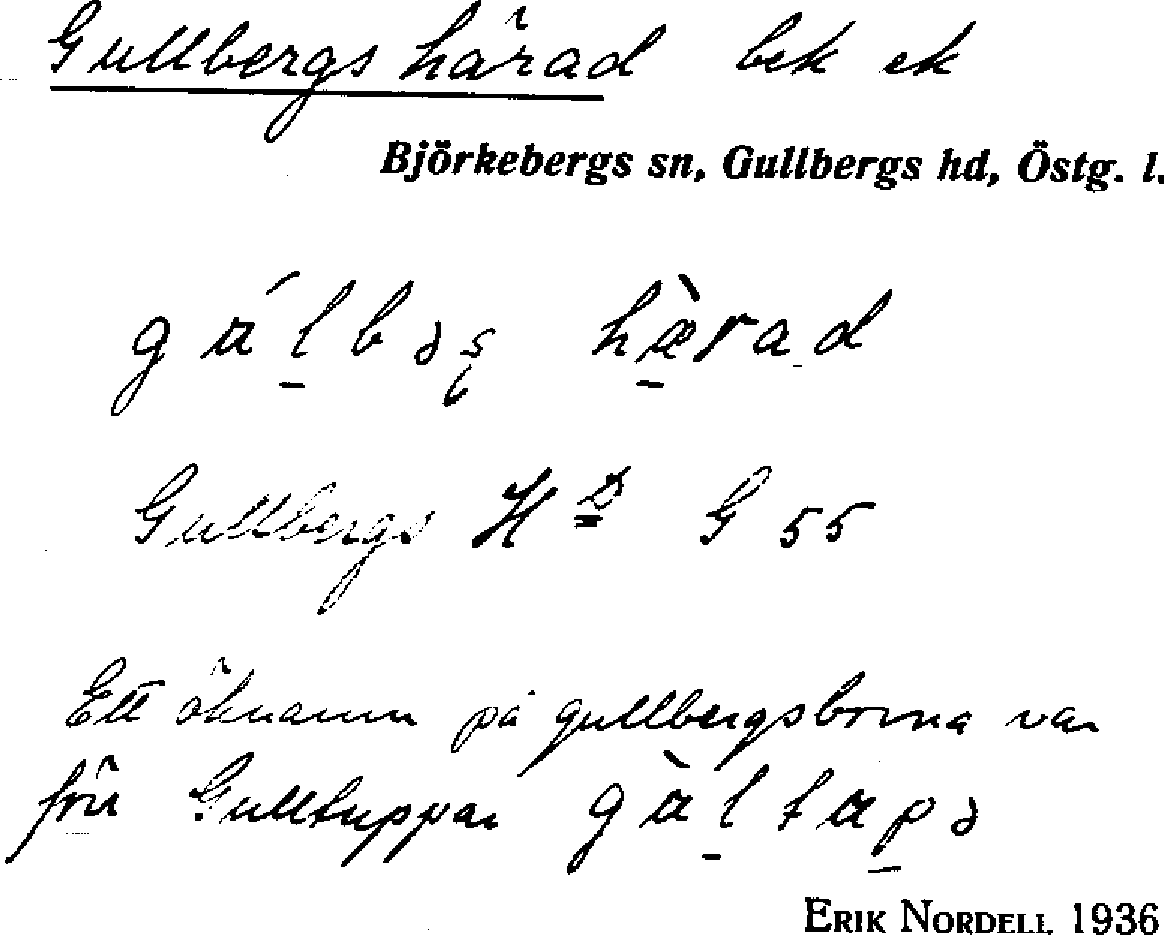 Gullbergs härad bek ek
Björkebergs sn, Gullbergs hd, Östg. l.
Gullbergs H D G 55
Ett öknamn på gullbergsborna var
förr Gulltuppar
ERIK NORDELL 1936